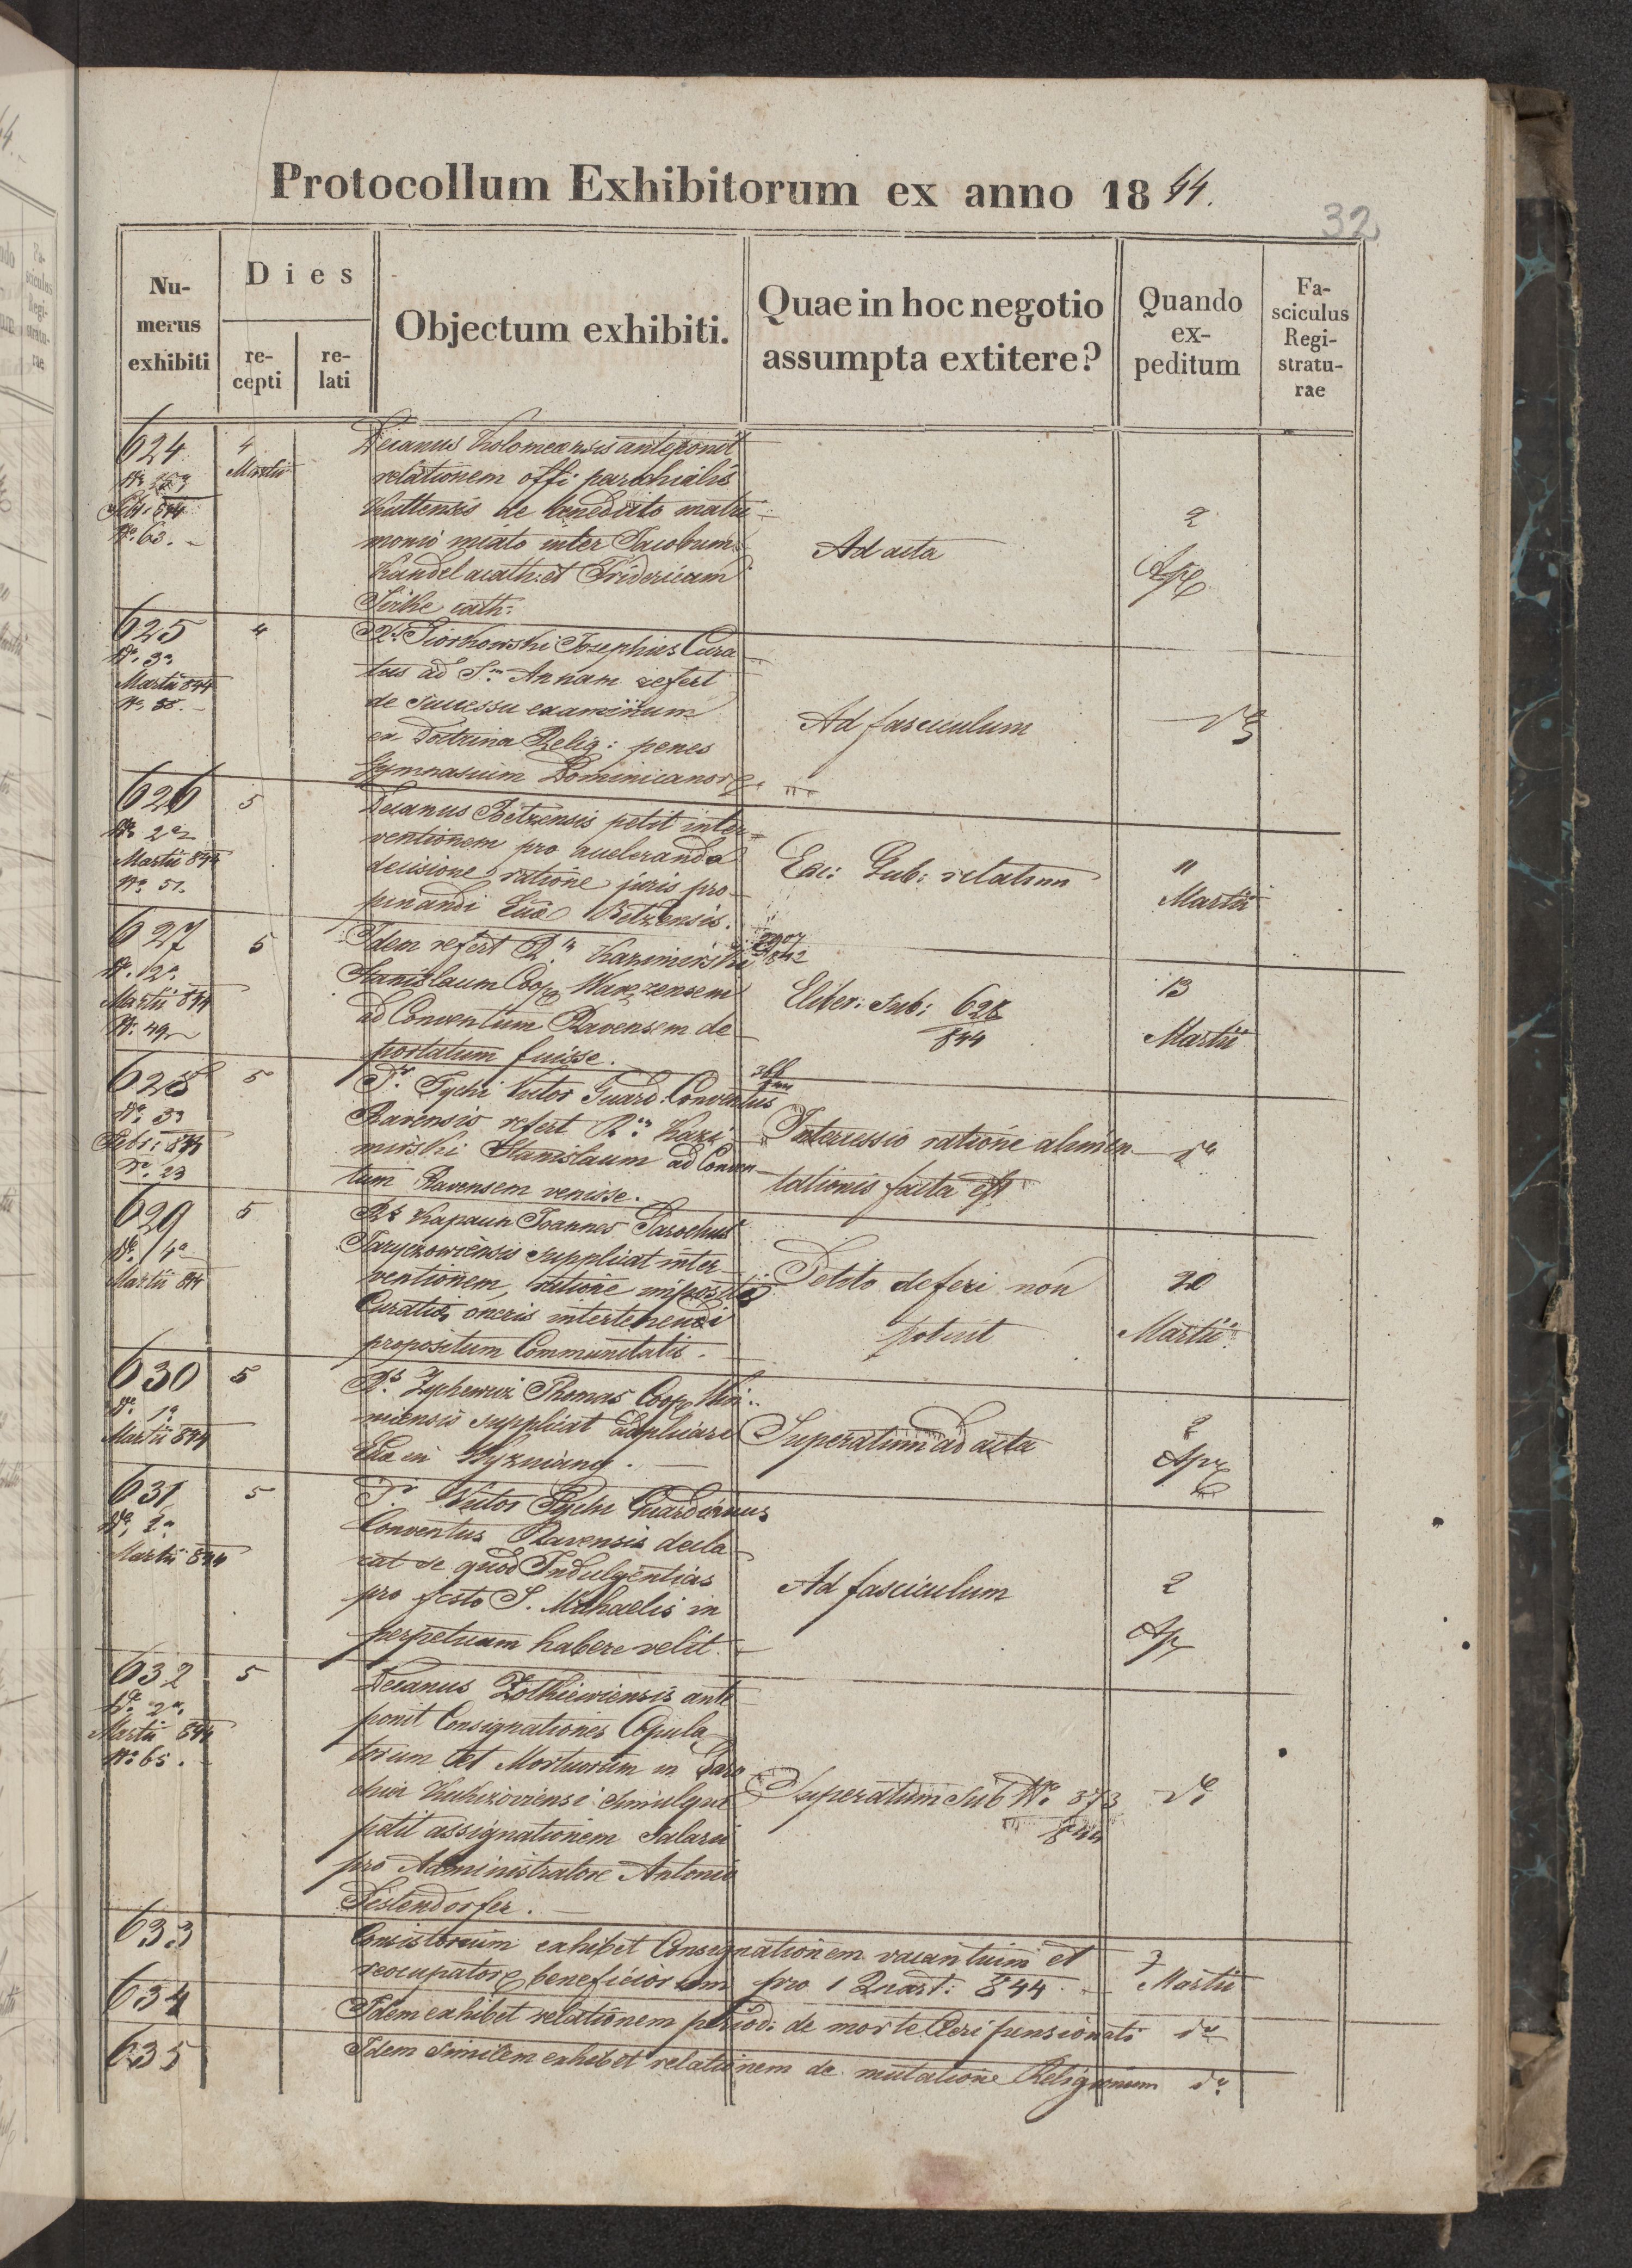 Protocollum Exhibitorum ex anno 1844.
32
Nu-
merus
exhibiti
Dies
re-
cepti
re-
lati
Objectum exhibiti.
Quae in hoc negotio
assumpta extitere?
Quando
ex-
peditum
Fa-
sciculus
Regi-
stratu-
rae
624
Febr: 844
No. 63.
4
Martii
Decanus Kolomeensis anteponit
relationem offi: parochialis
Kuttensis de benedicto matri-
monio mixto inter Jacobum
Kandel acath: et Fridericam
cath:
Ad acta
2
Apr
625
do. 3a
Martii 844
No. 58.
4
Rs. Piorkowski Josephus Cura
tus ad S. Annam refert
de successu examinum
ex Doctrina Relig: penes
Gymnasium Dominicanor.
Ad fasciculum
do
626
do. 2a
Martii 844
No. 51.
5
Decanus Betzensis petit inter-
ventionem pro acceleranda
decisione ratione juris pro-
pinandi Betzensis.
Exc: Gub: relatum
11
Martii
627
do. 2a
Martii 844
No. 49
5
Idem refert Rm Kazimirski
Stanislaum Coop. Warezensem
ad Conventum Ravensem de
portatum fuisse.
842
Eliber: sub: 628
844
13
Martii
628
do. 3a
Febr: 844
No. 23
5
Pr. Tychi Victor Guard. Conventus
Ravensis refert Rm Kazi
mirski Stanislaum ad Conven-
tum Ravensem venisse.
Intercessio ratione alimen-
tationis facta est
do
629
do. 4a
Martii 844
5
Rs Kapaun Joannes Parochus
Taryczowiensis supplicat inter-
ventionem, ratione impositi
Curatis oneris intertenendi
propositum Communitatis.
Petito deferi non
poterit
20
Martii
630
do. 1a
Martii 844
5
Rs. Zychewicz Thomas Coop. Win-
niensis supplicat applicari
in Hyzniany.
Superatum ad acta
2
Apr
631
do. 2a
Martii 844
5
Pr Victor Tychi Guardianus
Conventus Ravensis decla
rat se quod Indulgentias
pro festo S. Michaelis in
perpetuum habere velit.
Ad fasciculum
2
Apr
632
do. 2a.
Martii 844
No 65.
5
Decanus Zolkiewiensis ante
ponit Consignationes Copula
torum et Mortuorum in Paro
chia Kukizoviensi simulque
petit assignationem Salarii
pro Administratore Antonio
Destendorfer.
Superatum sub No. 873
844
do
633
Consistorium exhibet Consignationem vacantium et
reocupator. beneficiorum pro 1 Quart: 844.
7
Martii
634
Idem exhibet relationem period: de morte Cleri pensionati
do
635
Idem similem exhibet relationem de mutatione Religionum
do